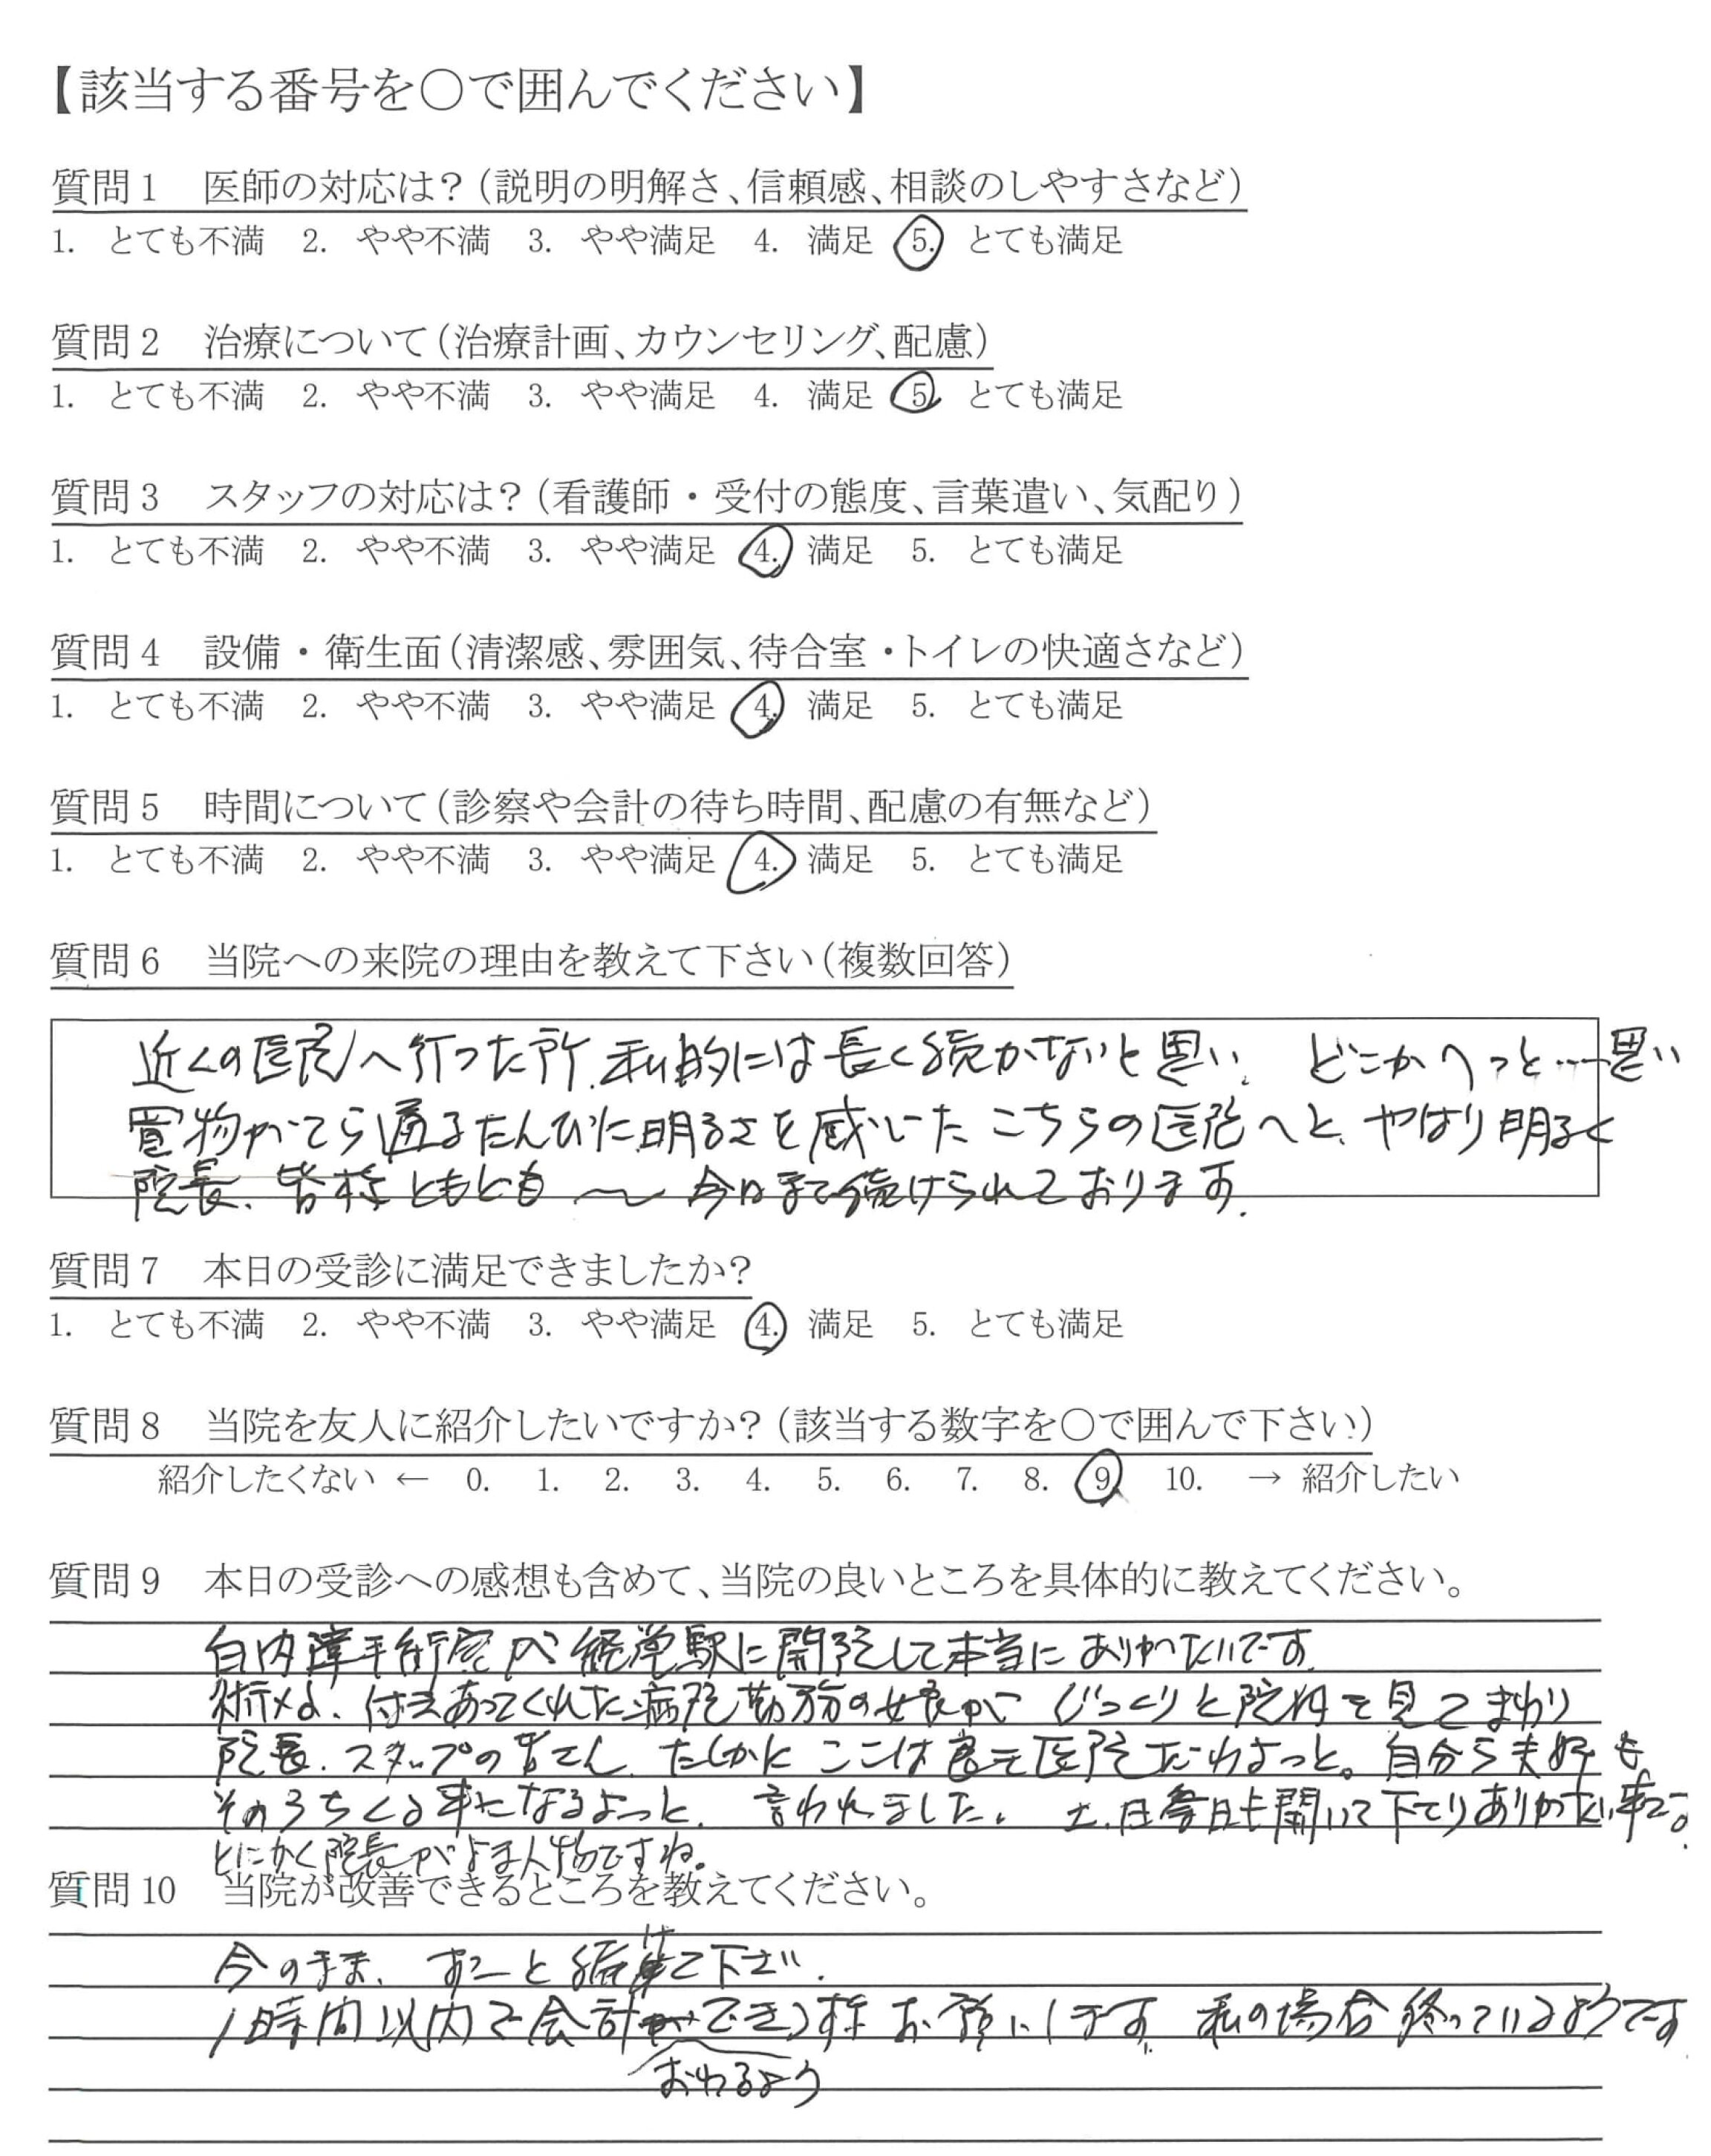 【該当する番号を○で囲んでください】
質問1　医師の対応は？（説明の明解さ、信頼感、相談のしやすさなど）
1. とても不満 2. やや不満 3. やや満足 4. 満足 5. とても満足
質問2　治療について（治療計画、カウンセリング、配慮）
1. とても不満 2. やや不満 3. やや満足 4. 満足 5. とても満足
質問3　スタッフの対応は？（看護師・受付の態度、言葉遣い、気配り）
1. とても不満 2. やや不満 3. やや満足 4. 満足 5. とても満足
質問4　設備・衛生面（清潔感、雰囲気、待合室・トイレの快適さなど）
1. とても不満 2. やや不満 3. やや満足 4. 満足 5. とても満足
質問5　時間について（診察や会計の待ち時間、配慮の有無など）
1. とても不満 2. やや不満 3. やや満足 4. 満足 5. とても満足
質問6　当院への来院の理由を教えて下さい（複数回答）
近くの医院へ行った所、私的には長く続かないと思い、どこかへっと…思い
買物がてら通るたんびに明るさを感じた こちらの医院へと、やはり明るく
院長、皆様ともとも 〜 今日まで続けられております。
質問7　本日の受診に満足できましたか？
1. とても不満 2. やや不満 3. やや満足 4. 満足 5. とても満足
質問8　当院を友人に紹介したいですか？（該当する数字を○で囲んで下さい）
紹介したくない ← 0. 1. 2. 3. 4. 5. 6. 7. 8. 9. 10. → 紹介したい
質問9　本日の受診への感想も含めて、当院の良いところを具体的に教えてください。
白内障手術室が経堂駅に開院して本当にありがたいです。
付きあってくれた病院勤務の娘が じっくりと院内を見てまわり
院長、スタッフの皆さん、たしかに ここは良き医院だわよっと。自分ら夫婦も
そのうちくる事になるよっと、言われました。土、日毎日と開いて下さりありがたい事で。
とにかく院長がよき人物ですね。
質問10　当院が改善できるところを教えてください。
今のまま、ずーと続けて下さい。
1時間以内で会計 おわるよう お願いします。私の場合終っているようです